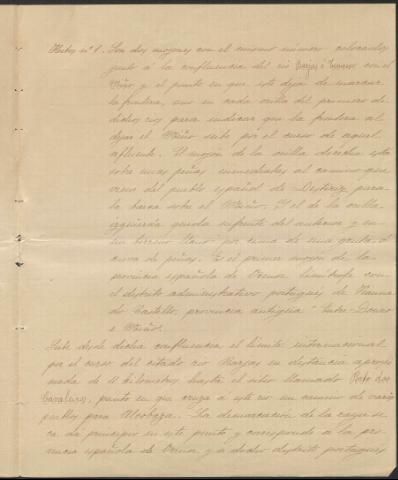 Hitos nº 1. Son dos mojones con el mismo número colocados
junto á la confluencia del rio Barjas ó Troncoso con el
Miño y el punto en que este deja de marcar
la frontera, uno en cada orilla del primero de
dichos rios para indicar que la frontera al
dejar el Miño sube por el curso de aquel
afluente. El mojon de la orilla derecha está
sobre unas peñas inmediatas al camino que
viene del pueblo español de Desteriz para
la barca sobre el Miño. Y el de la orilla
izquierda queda enfrente del anterior y en
un terreno llano por cima de una gruta ó
cueva de peñas. Es el primer mojon de la
provincia española de Orense limítrofe con
el distrito administrativo portugués de Vianna
do Castello, provincia antigua Entre-Douro
é Miño.
Sube desde dicha confluencia el límite internacional
por el curso del citado rio Barjas en distancia aproxi
mada de 11 kilómetros hasta el sitio llamado Porto dos
Cavaleiros, punto en que cruza á este rio un camino de varios
pueblos para Alcobaza. La demarcación de la raya se
ca dá principio en este punto y corresponde á la pro
vincia española de Orense y á dicho distrito portugués